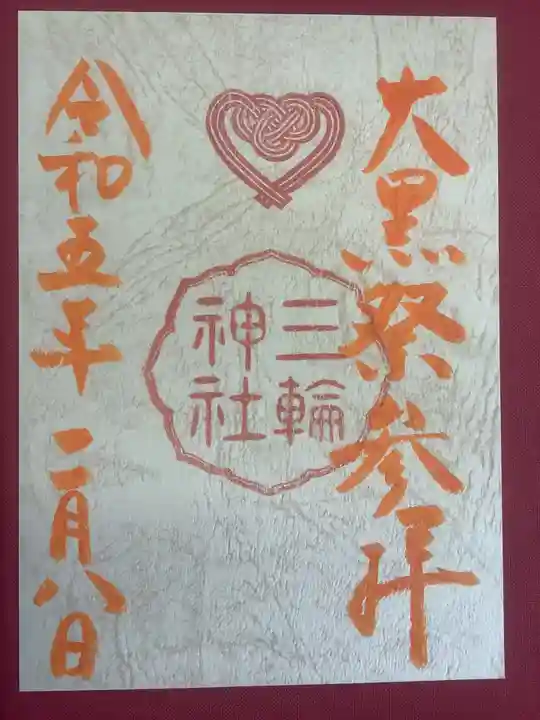 大黒祭参拝
三輪
神社
令和五年二月八日